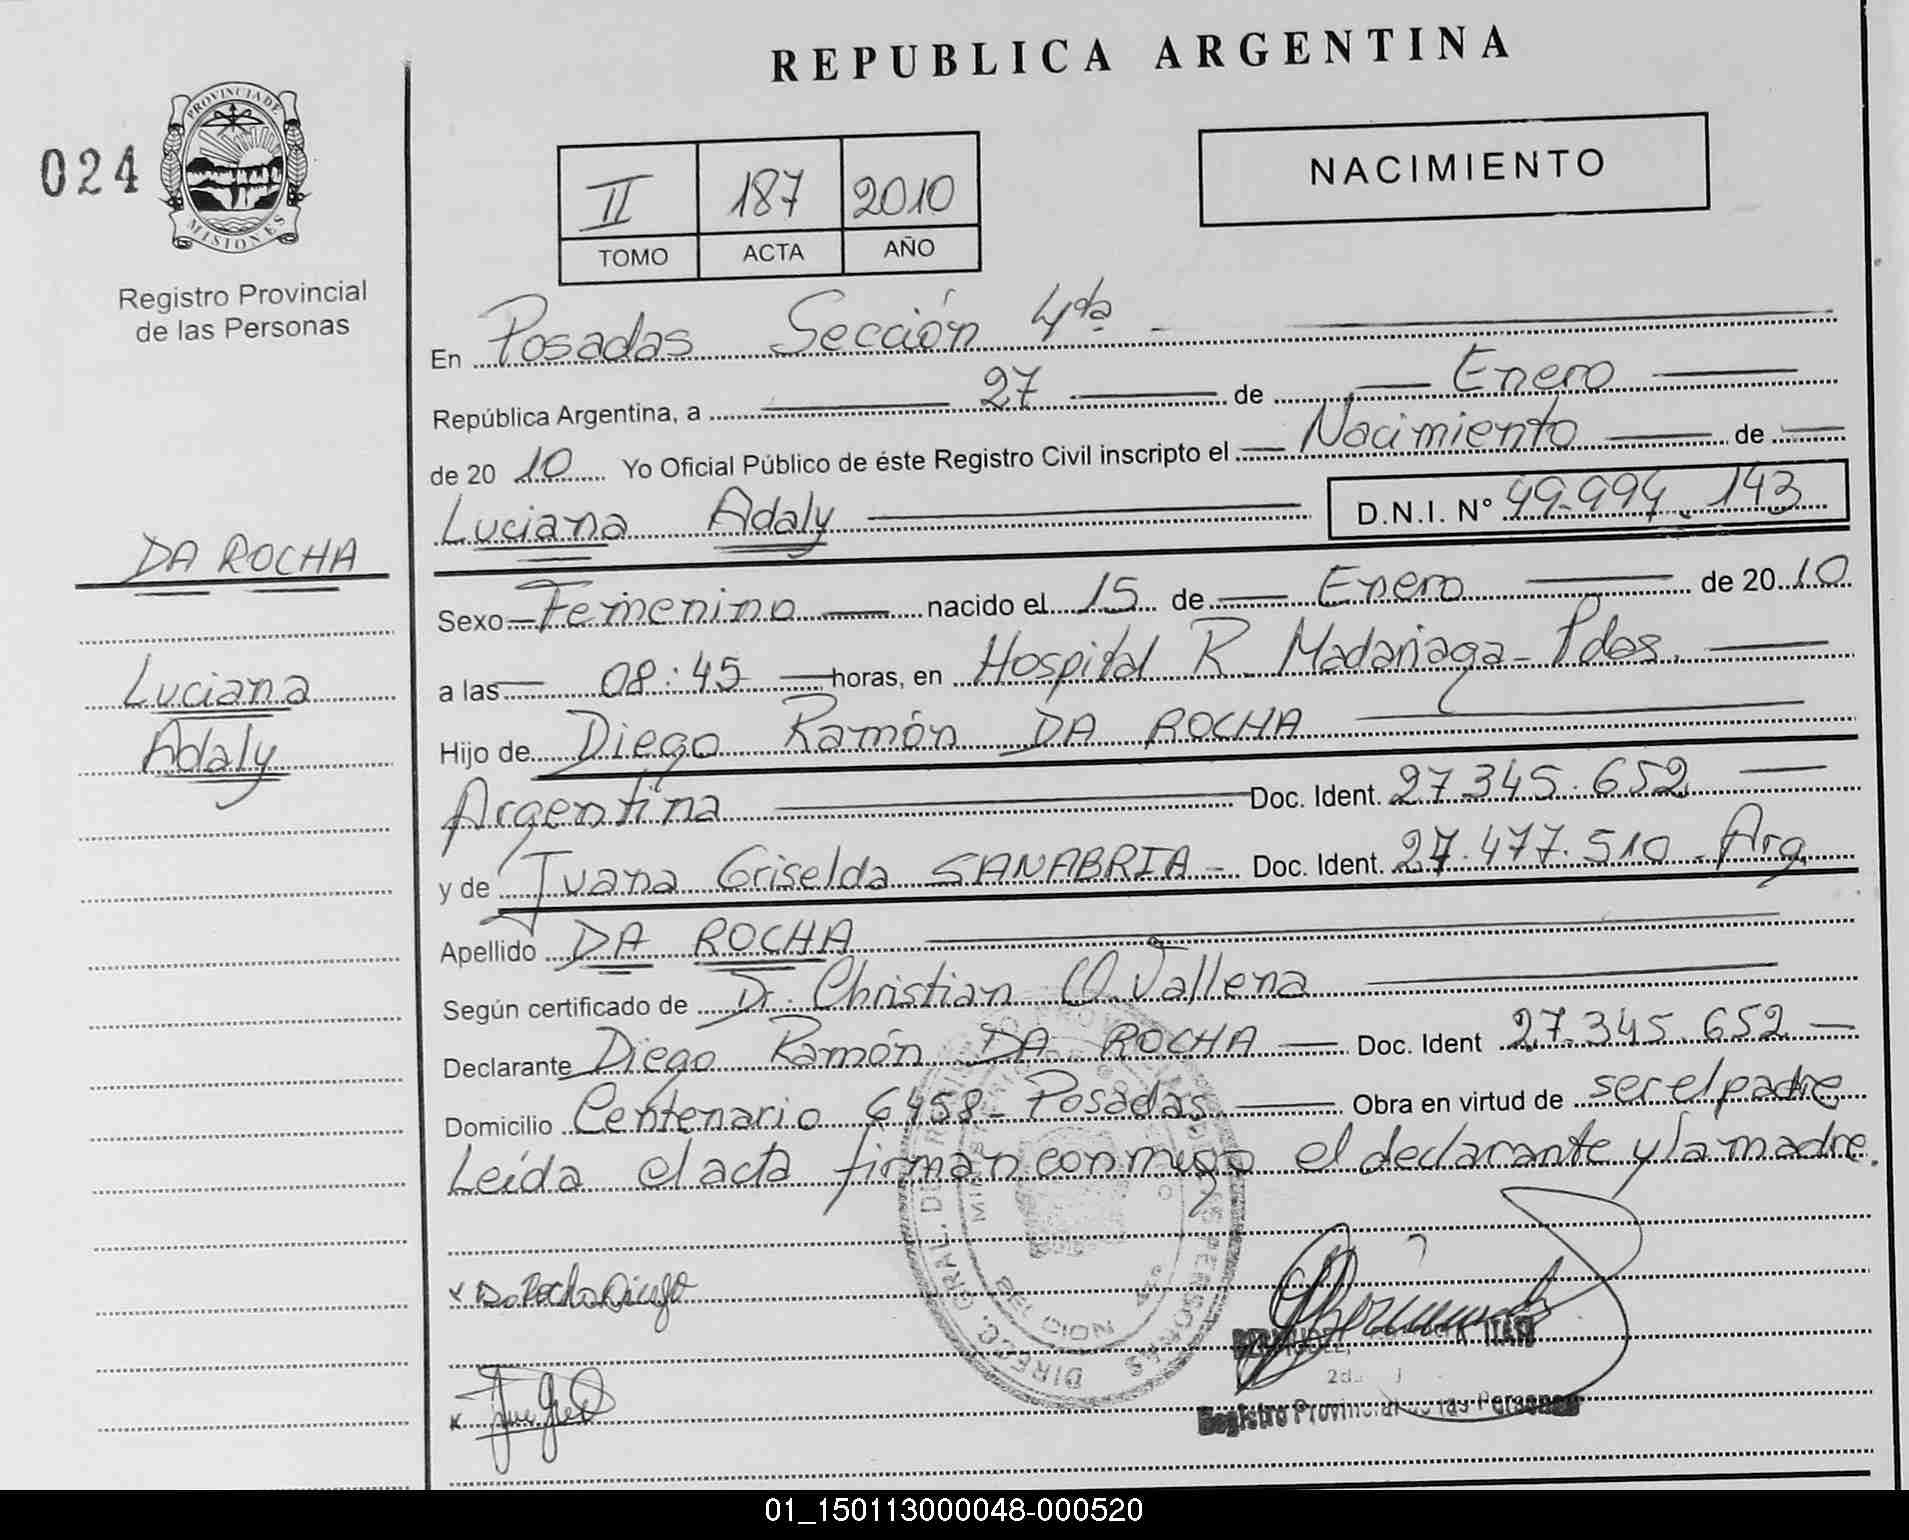 REPUBLICA ARGENTINA
024
PROVINCIA DE
MISIONES
Registro Provincial
de las Personas
II 187 2010
TOMO ACTA AÑO
NACIMIENTO
En Posadas Sección 4ta
República Argentina, a 27 de Enero
de 20 10 Yo Oficial Público de éste Registro Civil inscripto el Nacimiento de
Luciana Adaly D.N.I. Nº 49.994.143
DA ROCHA
Luciana
Adaly
Sexo Femenino nacido el 15 de Enero de 20 10
a las 08:45 horas, en Hospital R. Madariaga - Pdas.
Hijo de Diego Ramón DA ROCHA
Argentina Doc. Ident. 27.345.652
y de Juana Griselda SANABRIA - Doc. Ident. 27.477.510 - Arg.
Apellido DA ROCHA
Según certificado de Dr. Christian O. Vallena
Declarante Diego Ramón DA ROCHA Doc. Ident 27.345.652
Domicilio Centenario 6458 - Posadas Obra en virtud de ser el padre
Leída el acta firman conmigo el declarante y la madre.
x Da Rocha Diego
Registro Provincial de las Personas
01_150113000048-000520